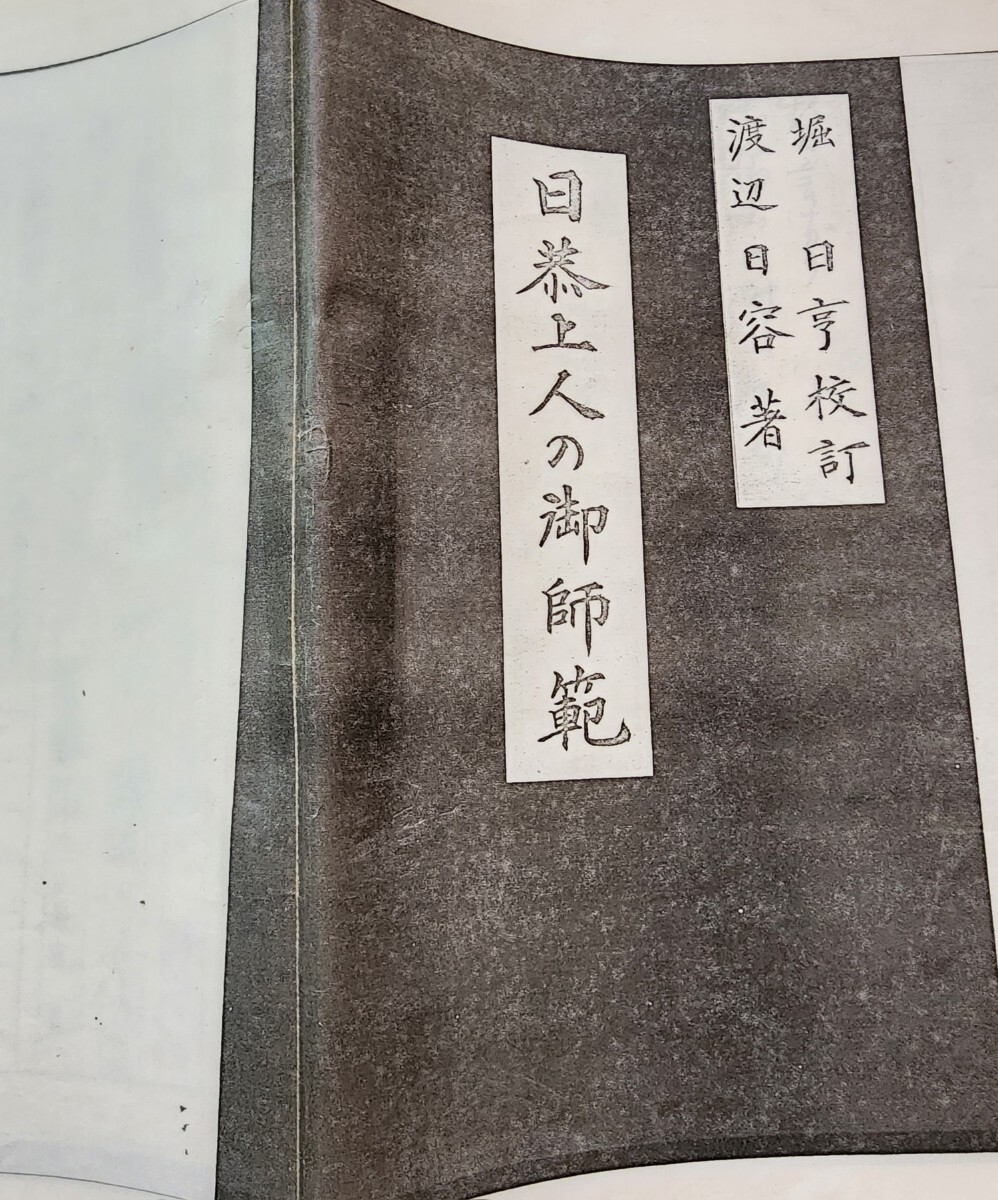 堀 日亨校訂
渡辺日容著
日恭上人の御師範